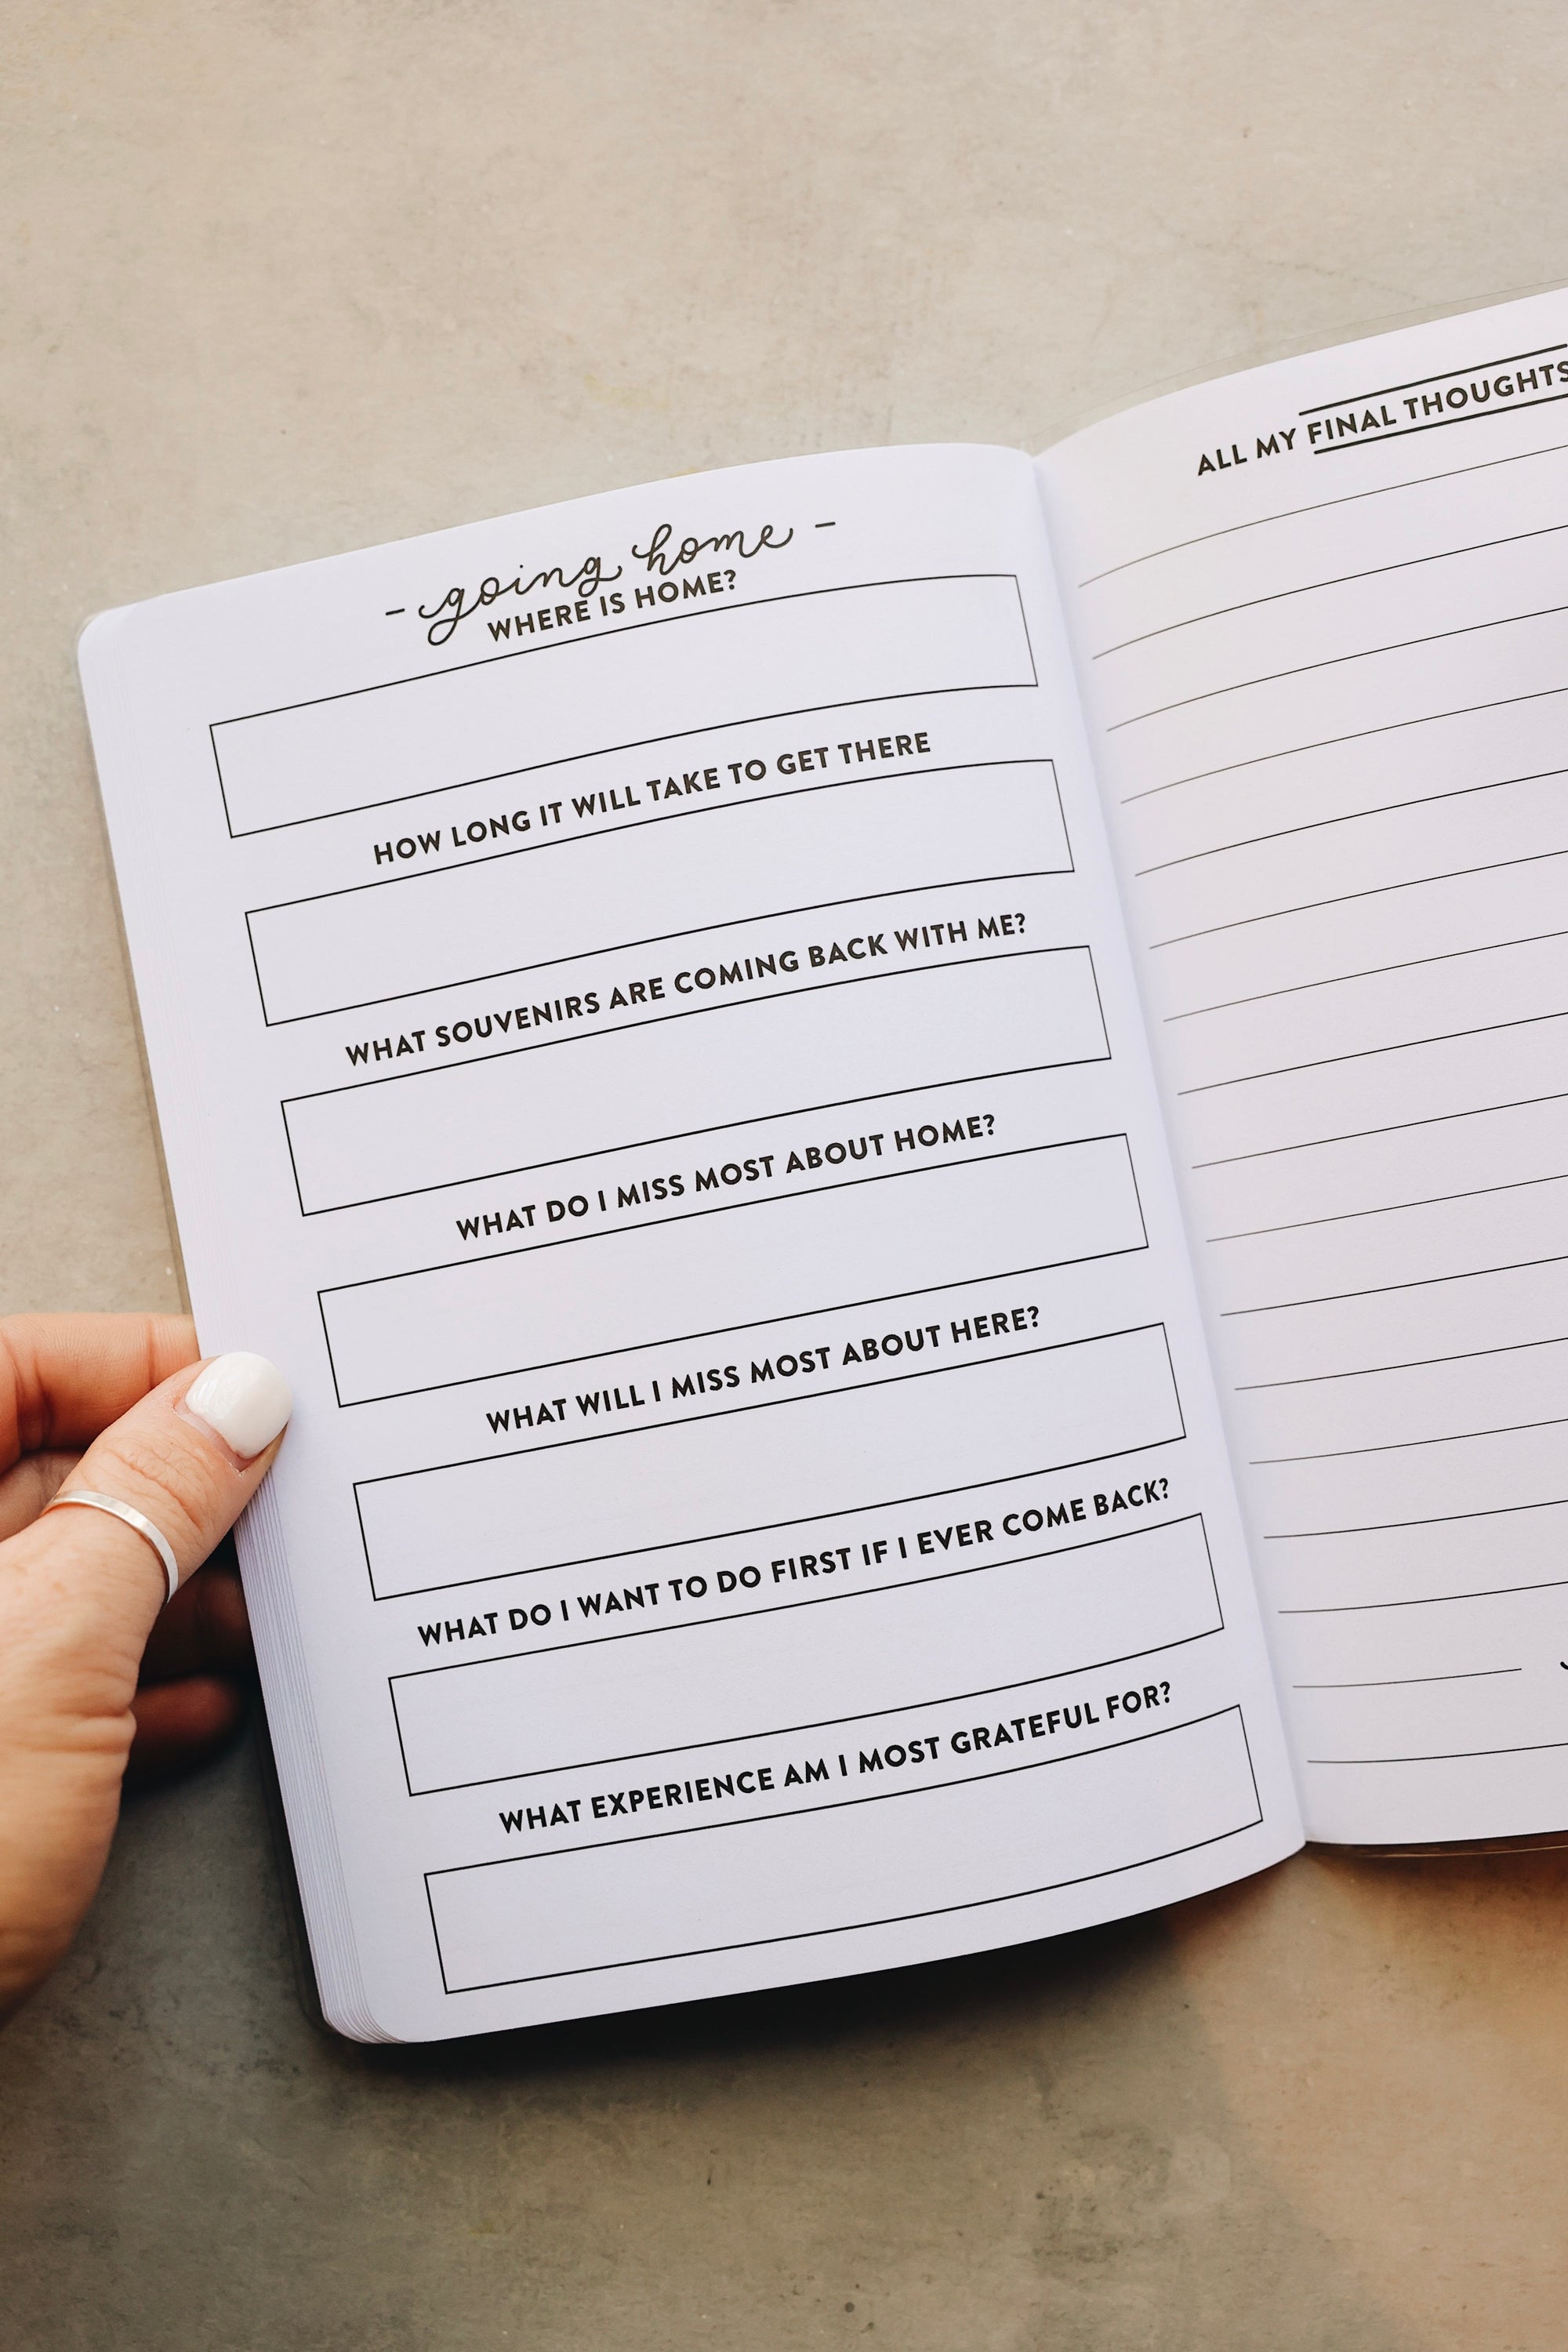 - going home -
WHERE IS HOME?
HOW LONG IT WILL TAKE TO GET THERE
WHAT SOUVENIRS ARE COMING BACK WITH ME?
WHAT DO I MISS MOST ABOUT HOME?
WHAT WILL I MISS MOST ABOUT HERE?
WHAT DO I WANT TO DO FIRST IF I EVER COME BACK?
WHAT EXPERIENCE AM I MOST GRATEFUL FOR?
ALL MY FINAL THOUGHTS